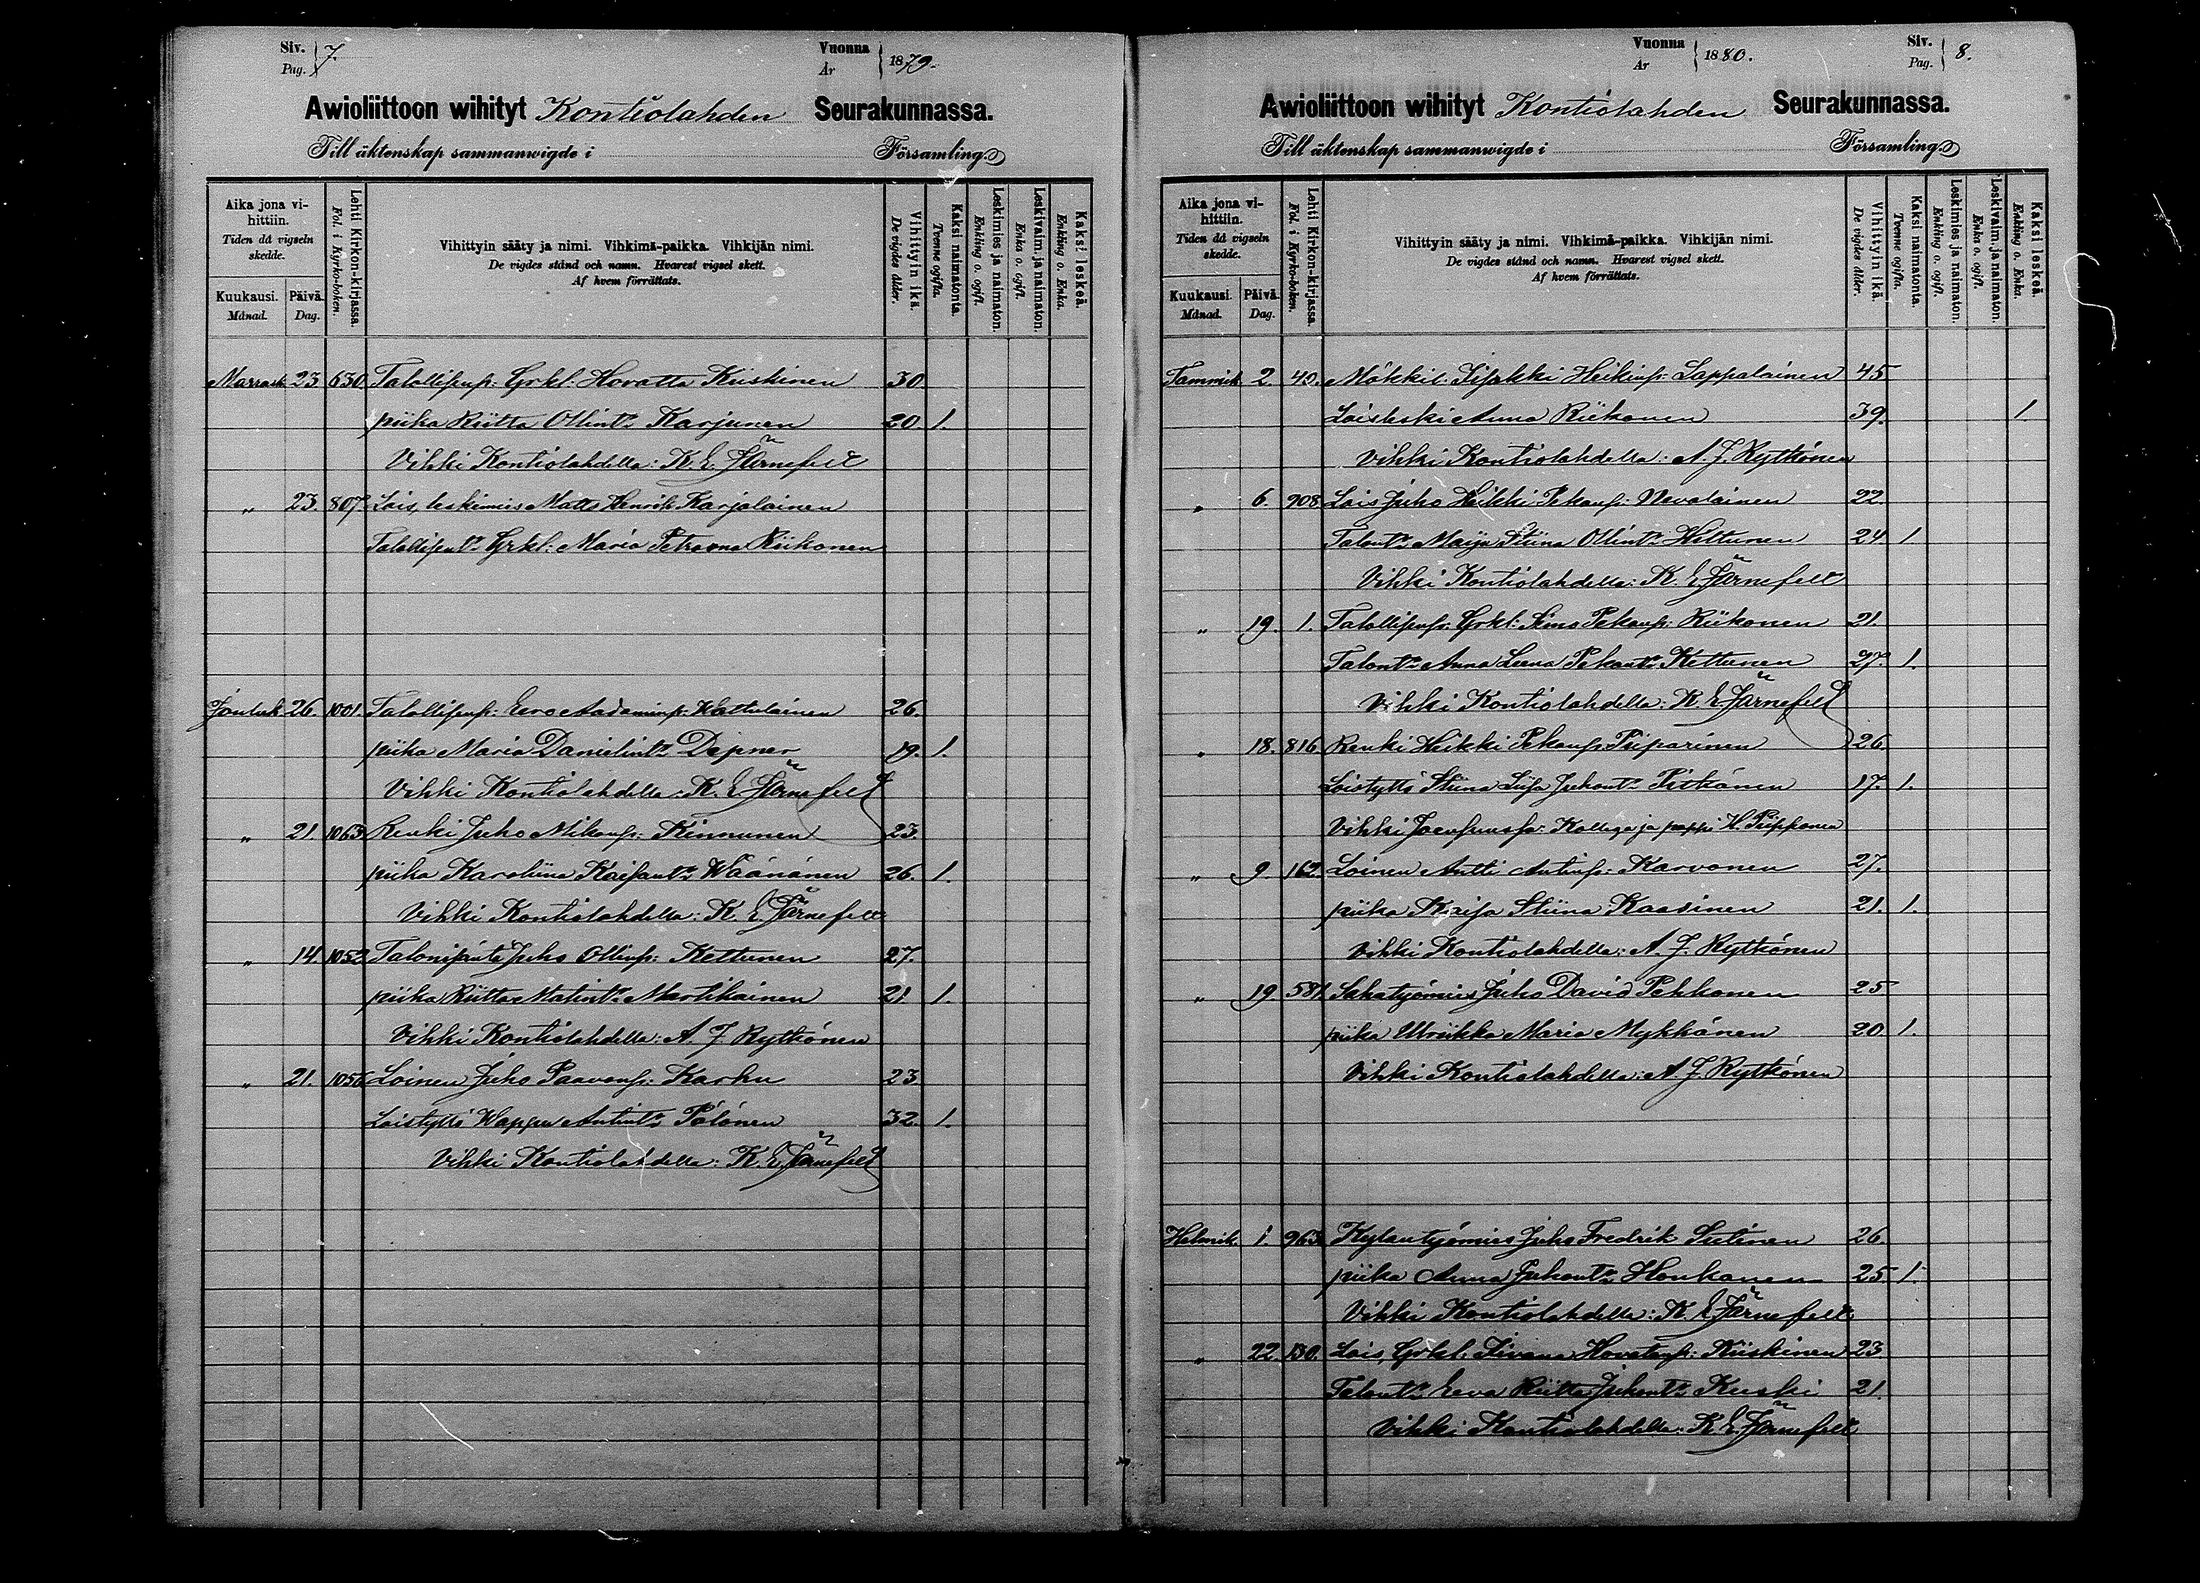 Siv. Pag. 7. Vuonna År 1879.
Awioliittoon wihityt Kontiolahden Seurakunnassa.
Till äktenskap sammanwigde i Församling.
Aika jona vihittiin. Tiden då vigseln skedde.
Kuukausi. Månad. Päivä. Dag.
Lehti Kirkon-kirjassa. Fol. i Kyrko-boken.
Vihittyin sääty ja nimi. Vihkimä-paikka. Vihkijän nimi.
De vigdes stånd och namn. Hvarest vigsel skett.
Af hvem förrättats.
Vihittyin ikä. De vigdes ålder.
Kaksi naimatonta. Tvenne ogifta.
Leskimies ja naimaton. Enkling o. ogift.
Leskivaim. ja naimaton. Enka o. ogift.
Kaksi leskeä. Enkling o. Enka.
Marrask. 23 630 Talollisenp: Grkl: Hovatta Kiiskinen 30
piika Riitta Ollint. Karjunen 20 1.
Vihki Kontiolahdella: K. E. Järnefelt
" 23. 807. Lois, leskimies Matts Henrik Karjalainen
Talollisent. Grkl: Maria Petrovna Riikonen
Jouluk 26. 1001. Talollisenp: Eero Aadaminp: Wattulainen 26.
piika Maria Danielint. Depner 19. 1.
Vihki Kontiolahdella: K. E. Järnefelt
" 21. 1063 Renki Juho Mikonp: Kinnunen 23.
piika Karoliina Kaisant. Wäänänen 26. 1.
Vihki Kontiolahdella: K. E. Järnefelt
" 14. 1052 Talonisäntä Juho Ollinp: Kettunen 27.
piika Riitta Matint. Martikainen 21 1.
Vihki Kontiolahdella: A. J. Rytkönen
" 21. 1056 Loinen Juho Paavonp: Karhu 23
Loistyttö Wappu Antint. Pölönen 32. 1.
Vihki Kontiolahdella: K. E. Järnefelt
Vuonna År 1880. Siv. Pag. 8.
Awioliittoon wihityt Kontiolahden Seurakunnassa.
Till äktenskap sammanwigde i Församling.
Aika jona vihittiin. Tiden då vigseln skedde.
Kuukausi. Månad. Päivä. Dag.
Lehti Kirkon-kirjassa. Fol. i Kyrko-boken.
Vihittyin sääty ja nimi. Vihkimä-paikka. Vihkijän nimi.
De vigdes stånd och namn. Hvarest vigsel skett.
Af hvem förrättats.
Vihittyin ikä. De vigdes ålder.
Kaksi naimatonta. Tvenne ogifta.
Leskimies ja naimaton. Enkling o. ogift.
Leskivaim. ja naimaton. Enka o. ogift.
Kaksi leskeä. Enkling o. Enka.
Tammik. 2. 40. Mökkil. Iisakki Heikinp: Lappalainen 45
Loisleski Anna Riikonen 39. 1.
Vihki Kontiolahdella: A. J. Rytkönen
" 6. 908 Lois Juho Heikki Pekanp: Nevalainen 22.
Talont. Maija Stiina Ollint. Hiltunen 24. 1.
Vihki Kontiolahdella: K. E. Järnefelt
" 19. 1. Talollisenp: Grkl: Simo Pekanp: Riikonen 21.
Talont. Anna Leena Pekant. Kettunen 27. 1.
Vihki Kontiolahdella: K. E. Järnefelt
" 18. 816. Renki Heikki Pekanp: Piiparinen 26
Loistyttö Stiina Liisa Juhont. Pitkänen 17. 1.
Vihki Joensuussa: Kollega ja pappi H. Piipponen
" 9. 162. Loinen Antti Antinp: Karvonen 27.
piika Kaisa Stiina Kaasinen 21. 1.
Vihki Kontiolahdella: A. J. Rytkönen
" 19 581 Sahatyömies Juho David Pekkonen 25
piika Ulriikka Maria Mykkänen 20. 1.
Vihki Kontiolahdella: A. J. Rytkönen
Helmik. 1. 963. Kylantyömies Juho Fredrik Sutinen 26.
piika Anna Juhont. Honkanen 25. 1.
Vihki Kontiolahdella: K. E. Järnefelt
" 22. 130. Lois, Grkl: Iivana Hovatanp: Kiiskinen 23
Talont. Eeva Riitta Juhont. Kuski 21.
Vihki Kontiolahdella: K. E. Järnefelt